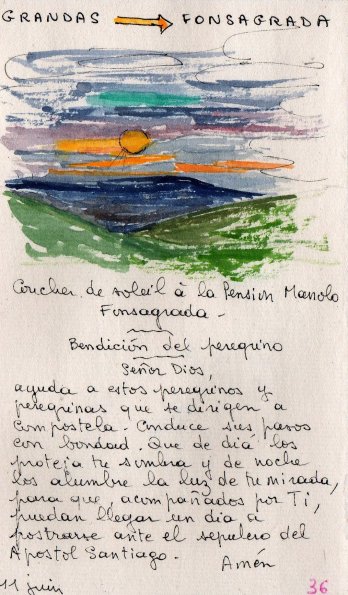 GRANDAS → FONSAGRADA
Coucher de soleil à la Pension Manolo
Fonsagrada -
Bendición del peregrino
Señor Dios,
ayuda a estos peregrinos y
peregrinas que se dirigen a
Compostela. Conduce sus pasos
con bondad. Que de dia los
proteja tu sombra y de noche
los alumbre la luz de tu mirada,
para que, acompañados por Ti,
puedan llegar un dia a
postrarse ante el sepulcro del
Apostol Santiago.
Amén
11 juin
36